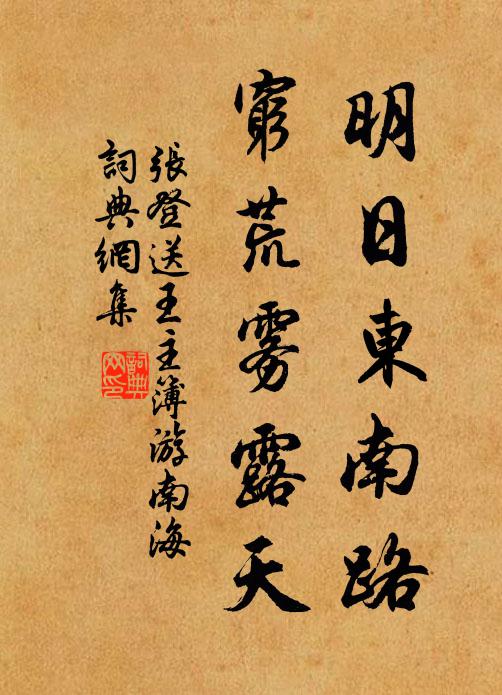 明日東南路
窮荒雾露天
張登送王主簿游南海
詞典網集
詞典网印